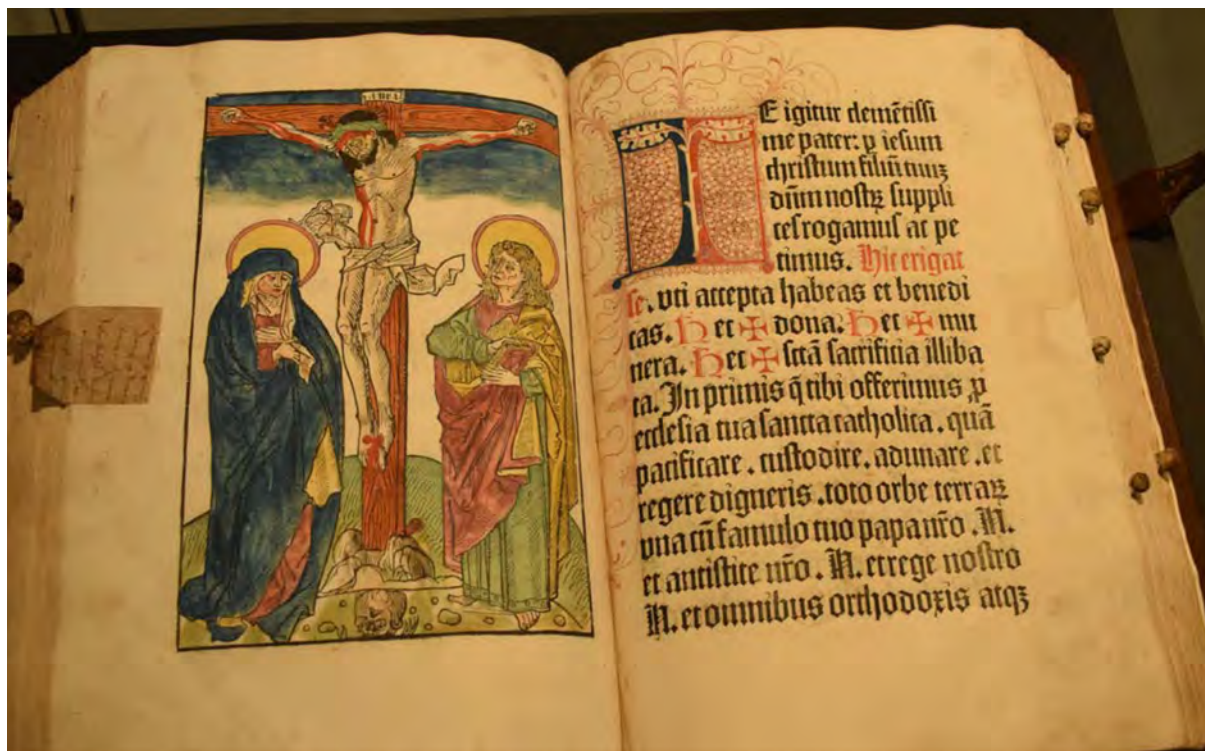 INRI
TE igitur clemētissi
me pater: ꝑ iesum
christum filiū tuuꝫ
dūm nostꝝ suppli
ces rogamus ac pe
timus. Hic erigat
se. vti accepta habeas et benedi
cas. Hec ✠ dona: Hec ✠ mu
nera. Hec ✠ sctā sacrificia illiba
ta. In primis q̄ tibi offerimus ꝓ
ecclesia tua sancta catholica. quā
pacificare. custodire. adunare. et
regere digneris. toto orbe terraꝝ
vna cū famulo tuo papa nr̄o. N.
et antistite nr̄o. N. et rege nostro
N. et omnibus orthodoxis atqꝫ